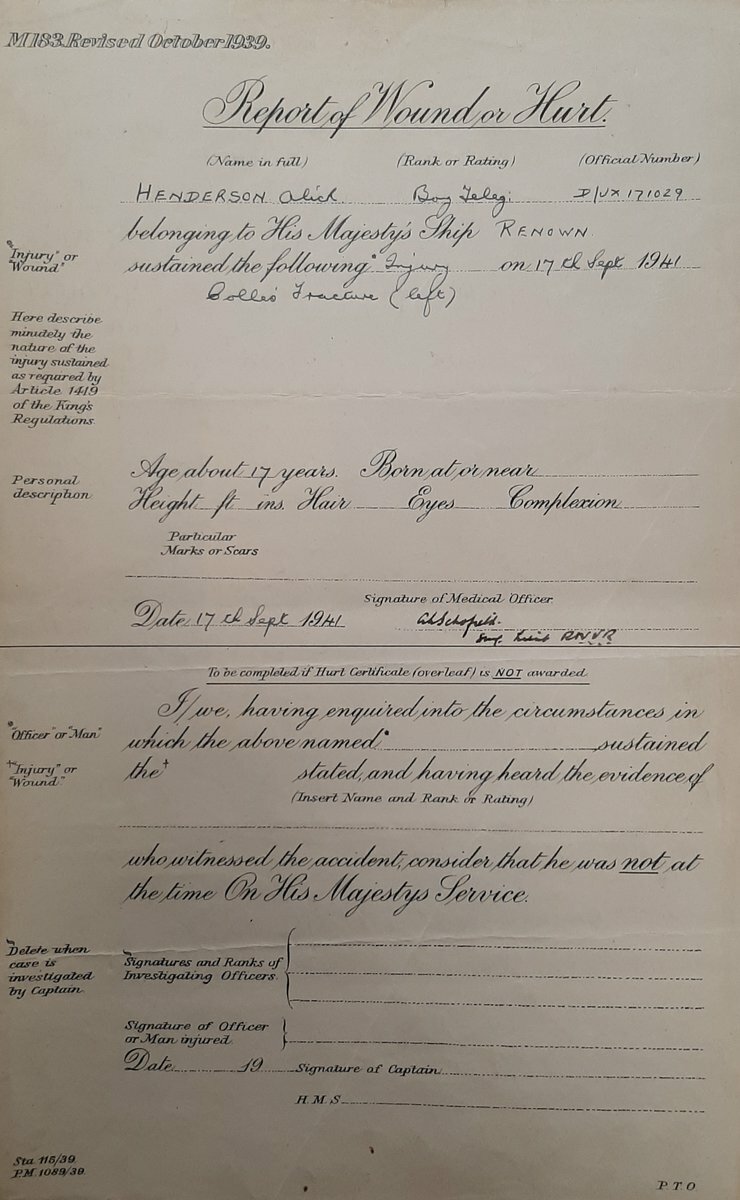 M183. Revised October 1939.
Report of Wound or Hurt.
(Name in full) (Rank or Rating) (Official Number)
HENDERSON Alick Boy Teleg: D/JX 171029
belonging to His Majesty's Ship RENOWN
"Injury" or "Wound"
sustained the following* Injury on 17th Sept 1941
Colles' Fracture (left)
Here describe
minutely the
nature of the
injury sustained
as required by
Article 1419
of the King's
Regulations.
Personal
description
Age about 17 years. Born at or near
Height ft ins. Hair Eyes Complexion
Particular
Marks or Scars
Signature of Medical Officer.
Date 17th Sept 1941
Surg. Lieut RNVR
To be completed if Hurt Certificate (overleaf) is NOT awarded.
I/we, having enquired into the circumstances in
*"Officer" or "Man"
which the above named* sustained
†"Injury" or
"Wound"
the† stated, and having heard the evidence of
(Insert Name and Rank or Rating)
who witnessed the accident, consider that he was not at
the time On His Majestys Service.
Delete when
case is
investigated
by Captain
Signatures and Ranks of
Investigating Officers.
Signature of Officer
or Man injured.
Date 19 Signature of Captain
H.M.S.
Sta 115/39.
P.M. 1089/39.
P.T.O